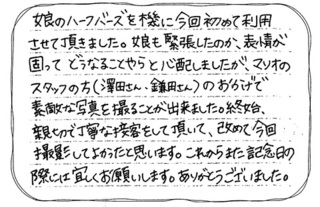 娘のハーフバースを機に今回初めて利用
させて頂きました。娘も緊張したのか、表情が
固って どうなることやらと心配しましたが、マリオの
スタッフの方(澤田さん・鎌田さん)のおかげで
素敵な写真を撮ることが出来ました。終始、
親切で丁寧な接客をして頂いて、改めて今回
撮影してよかったと思います。これからまた記念日の
際には宜しくお願いします。ありがとうございました。